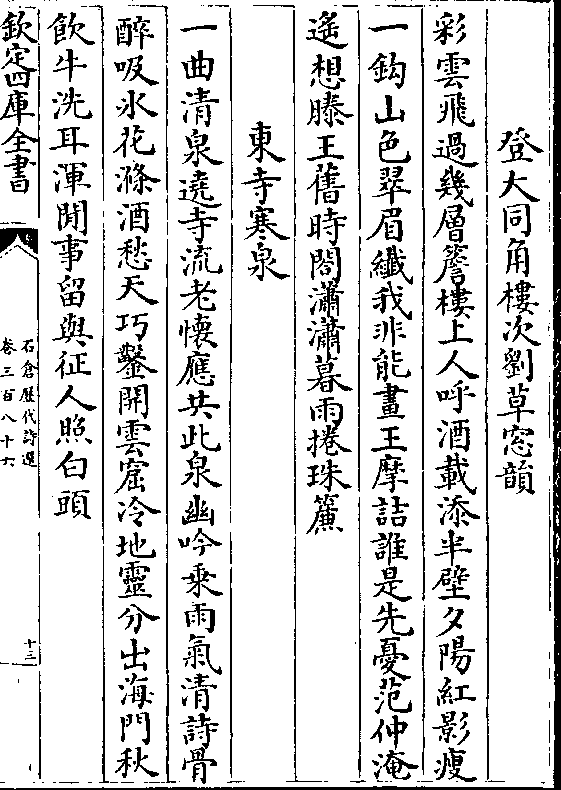 登大同角樓次劉草窓韻
彩雲飛過幾層簷樓上人呼酒載添半壁夕陽紅影瘦
一鈎山色翠眉纖我非能畫王摩詰誰是先憂范仲淹
遙想滕王舊時閣瀟瀟暮雨捲珠簾
東寺寒泉
一曲清泉遶寺流老懷應共此泉幽吟乗雨氣清詩骨
醉吸氷花滌酒愁天巧鑿開雲窟冷地靈分出海門秋
飲牛洗耳渾閒事留與征人照白頭
欽定四庫全書
石倉歷代詩選
卷三百八十六
十三